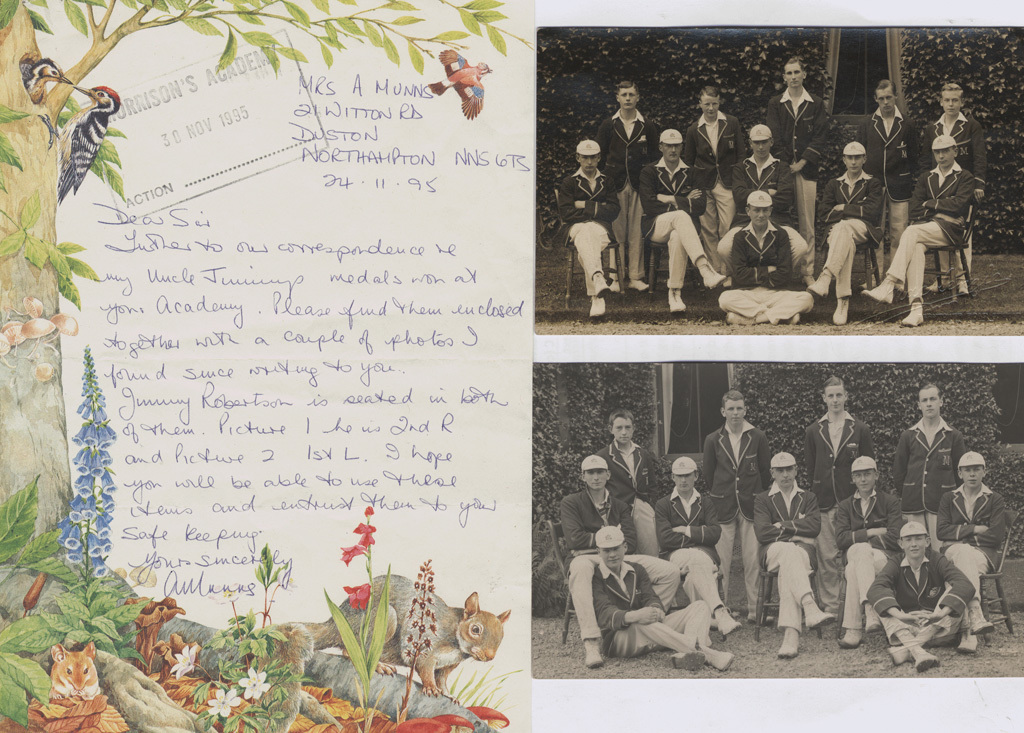 MORRISON'S ACADEMY
30 NOV 1995
ACTION
MRS A MUNNS
2 WITTON RD
DUSTON
NORTHAMPTON NN5 6TB
24.11.95
Dear Sir
Further to our correspondence re
my Uncle Jimmys medals won at
your Academy. Please find them enclosed
together with a couple of photos I
found since writing to you.
Jimmy Robertson is seated in both
of them. Picture 1 he is 2nd R
and Picture 2 1st L. I hope
you will be able to use these
items and entrust them to your
safe keeping.
Yours sincerely
AMunns